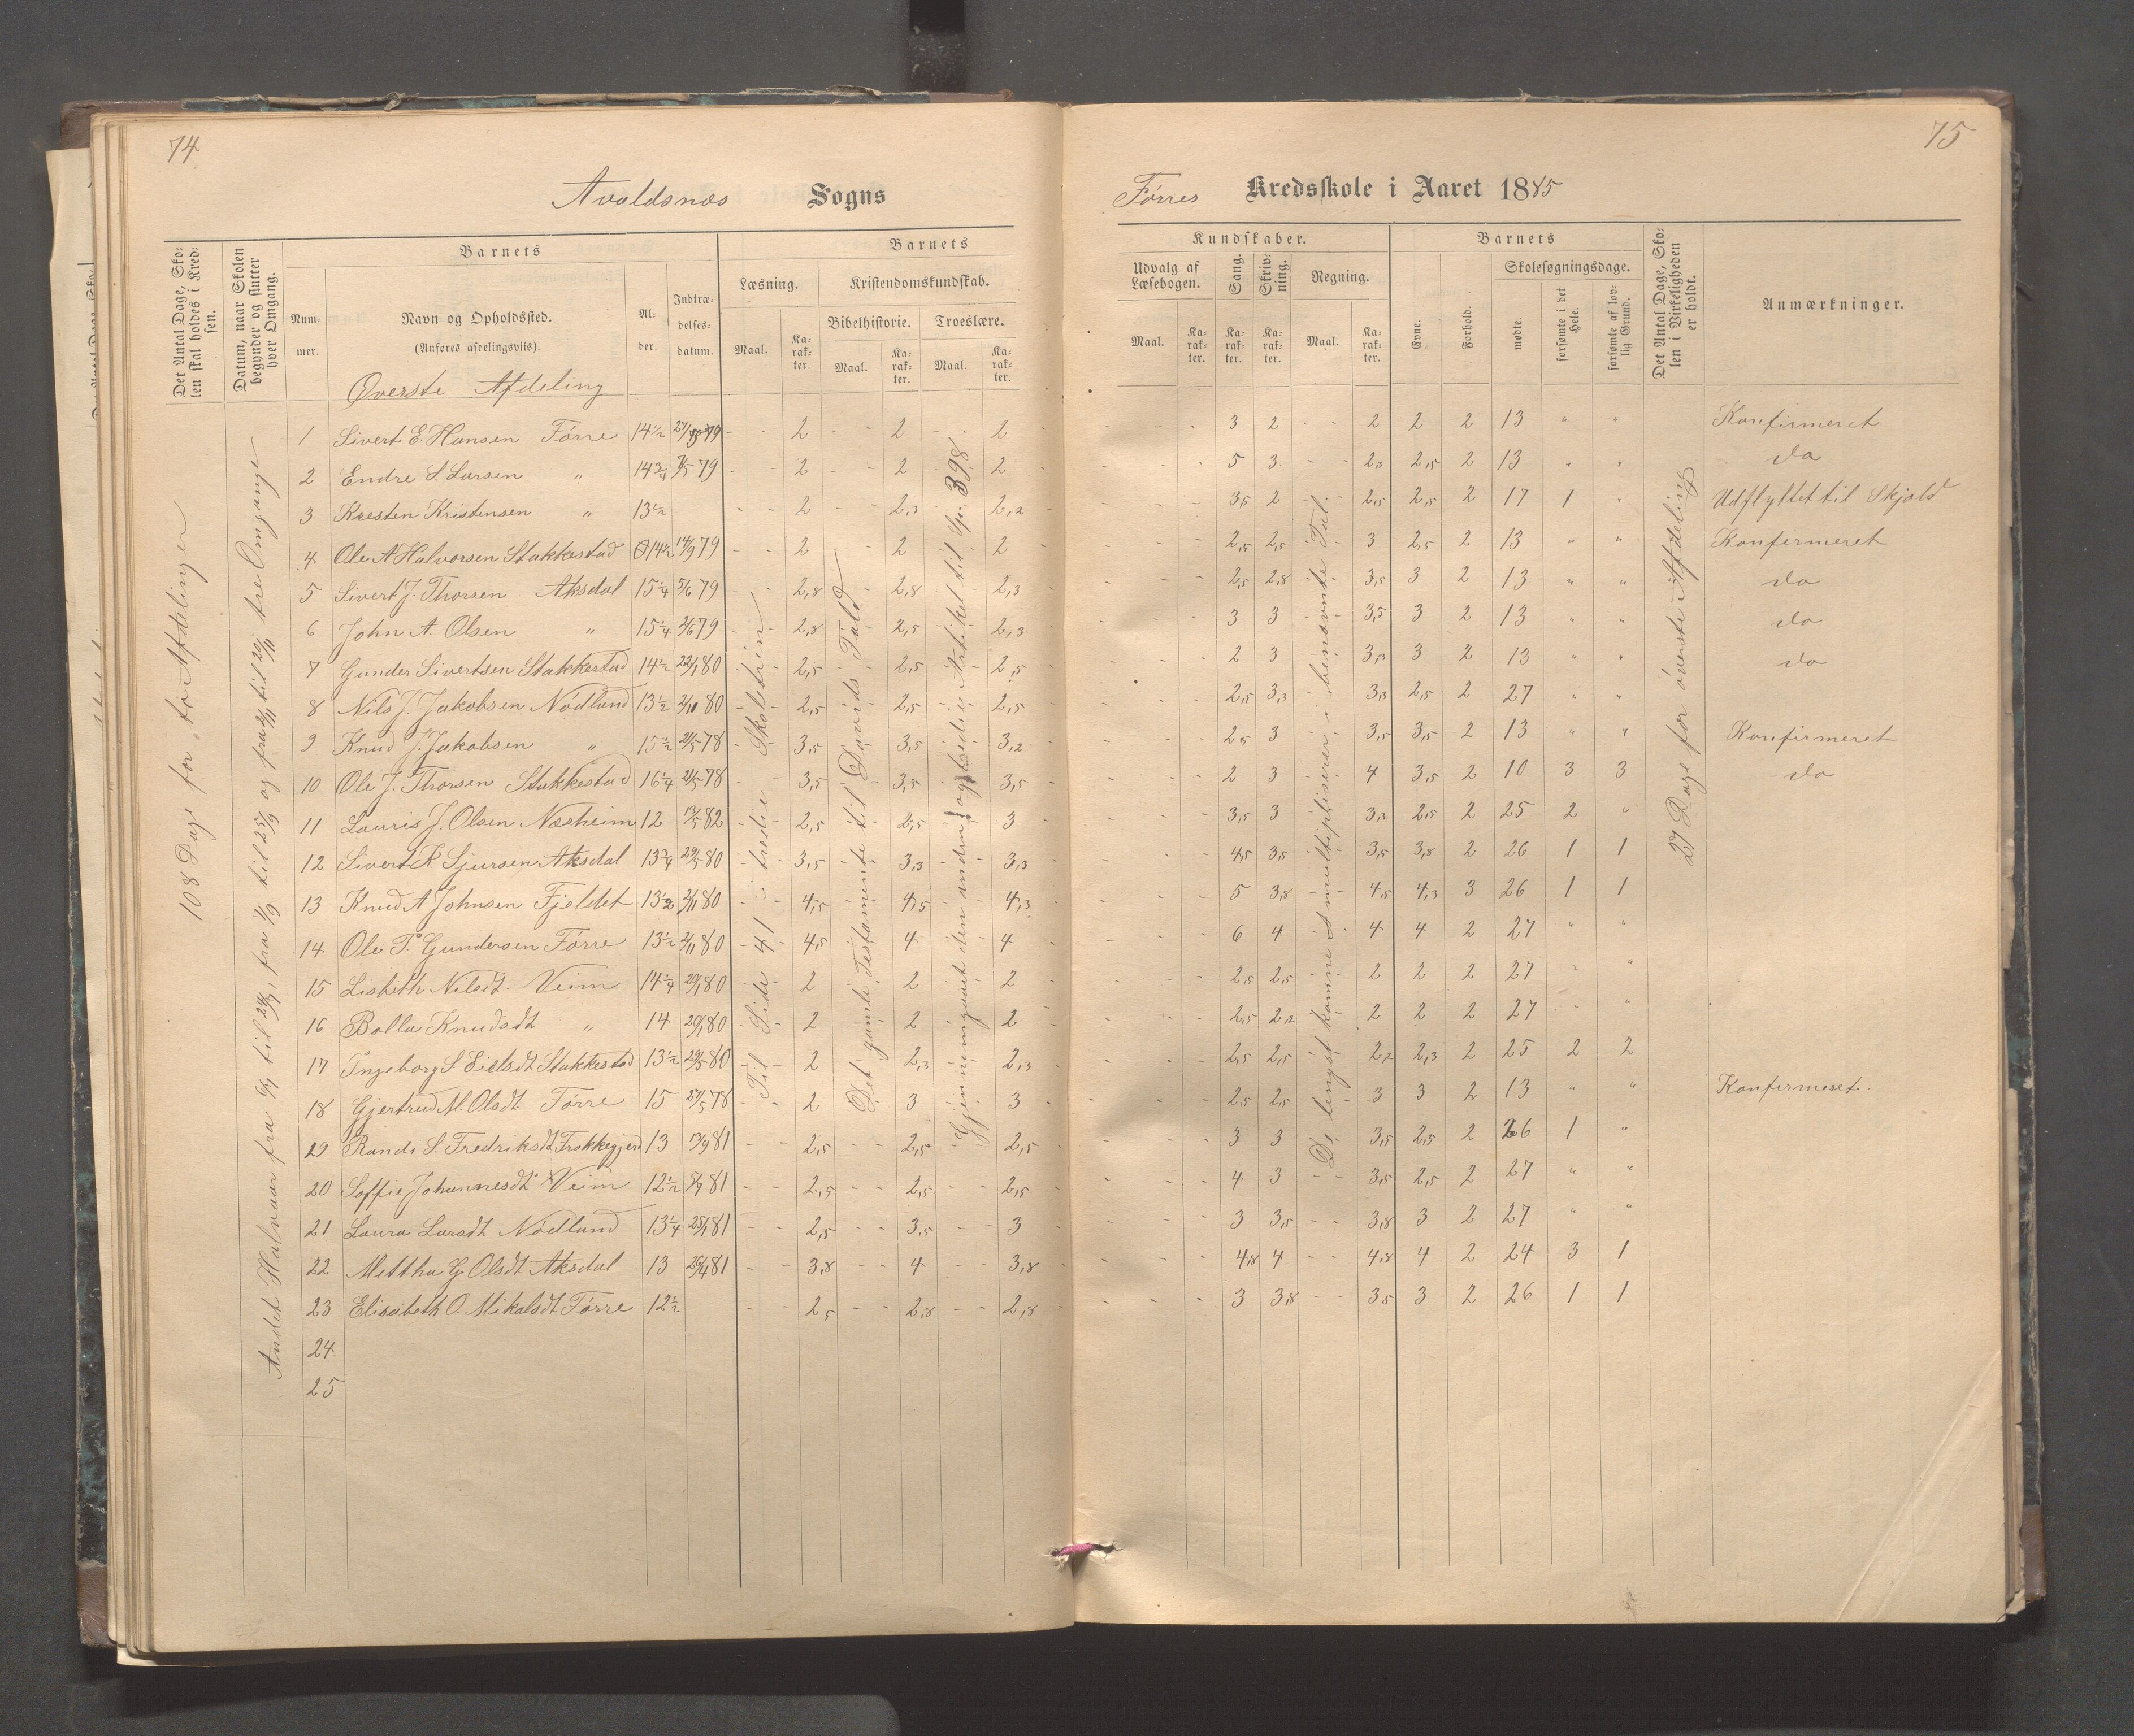 74
Avaldsnes Sogns
Det Antal Dage, Sko-
len skal holdes i Kred-
sen.
Datum, naar Skolen
begynder og slutter
hver Omgang.
Barnets
Num-
mer.
Navn og Opholdssted.
(Anføres afdelingsviis).
Al-
der.
Indtræ-
delses-
datum.
Barnets
Læsning.
Maal.
Ka-
rak-
ter.
Kristendomskundskab.
Bibelhistorie.
Troeslære.
Maal.
Ka-
rak-
ter.
Maal.
Ka-
rak-
ter.
Øverste Afdeling
1 Sivert E. Hansen Førre 14½ 79 - - 2 - - 2 - - 2
2 Endre S. Larsen " 14¾ 7/5 79 - - 2 - - 2 - - 2
3 Kresten Kristensen " 13½ - - 2 - - 2,3 - - 2,2
4 Ole A Halvorsen Stakkestad 14½ 14/9 79 - - 2 - - 2 - - 2
5 Sivert J. Thorsen Aksdal 15¼ 5/6 79 - - 2,8 - - 2,8 - - 2,3
6 John A. Olsen " 15¼ 2/6 79 - - 2,8 - - 2,5 - - 2,3
7 Gunder Sivertsen Stakkestad 14½ 22/1 80 - - 2,5 - - 2,5 - - 2,5
8 Nils J. Jakobsen Nødlund 13½ 2/11 80 - - 2,5 - - 2,5 - - 2,5
9 Knud J. Jakobsen " 15½ 21/5 78 - - 3,5 - - 3,5 - - 3,2
10 Ole J. Thorsen Stakkestad 16¼ 21/5 78 - - 3,5 - - 3,5 - - 3,5
11 Lauris J. Olsen Næsheim 12 13/5 82 - - 2,5 - - 2,5 - - 3
12 Sivert K Sjursen Aksdal 13¾ 29/5 80 - - 3,5 - - 3,3 - - 3,3
13 Knud A Johnsen Fjeldet 13½ 2/11 80 - - 4,5 - - 4,5 - - 4,3
14 Ole T. Gundersen Førre 13½ 2/11 80 - - 4,5 - - 4 - - 4
15 Lisbeth Nilsdt. Veim 14¼ 20/1 80 - - 2 - - 2 - - 2
16 Bolla Knudsdt " 14 20/1 80 - - 2 - - 2 - - 2
17 Ingeborg S Eielsdt Stakkestad 13½ 29/5 80 - - 2 - - 2,3 - - 2,3
18 Gjertrud M. Olsdt Førre 15 27/5 78 - - 2 - - 3 - - 3
19 Randi S. Fredriksdt Frakkagjerd 13 13/9 81 - - 2,5 - - 2,5 - - 2,5
20 Soffie Johannesdt Veim 12½ 81 - - 2,5 - - 2,5 - - 2,5
21 Laura Larsdt Nødlund 13¼ 25/1 81 - - 2,5 - - 3,5 - - 3
22 Mettha G Olsdt Aksdal 13 26/4 81 - - 3,8 - - 4 - - 3,8
23 Elisabeth O. Mikalsdt Førre 12½ - - 2,5 - - 2,8 - - 2,8
24
25
108 Dage for Afdelinger
Andet Halvaar fra til 24/7, fra 7/9 til 25/9 og fra 2/11 til 20/11 tre Omgange
Til Side 41 i tredie Skoletrin
Det gamle Testamente til Davids Tald
Gjennemgaaet den anden og tredie Artikel til Sp. 398
75
Førres Kredsskole i Aaret 1885
Kundskaber.
Udvalg af
Læsebogen.
Maal.
Ka-
rak-
ter.
Sang.
Ka-
rak-
ter.
Skriv-
ning.
Ka-
rak-
ter.
Regning.
Maal.
Ka-
rak-
ter.
Barnets
Evne.
Forhold.
Skolesøgningsdage.
mødte.
forsømte i det
Hele.
forsømte af lov-
lig Grund.
Det Antal Dage, Sko-
len i Virkeligheden
er holdt.
Anmærkninger.
3 2 - - 2 2 2 13 " " Konfirmeret
5 3 - - 2,3 2,5 2 13 " " do
3,5 2 - - 2,5 2,5 2 17 1 " Udflyttet til Skjold
2,5 2,5 - - 3 2,5 2 13 " " Konfirmeret
2,5 2,8 - - 3,5 3 2 13 " " do
3 3 - - 3,5 3 2 13 " " do
2 3 - - 3,3 3 2 13 " " do
2,5 3,3 - - 3,3 2,5 2 27 " "
2,5 3 - - 3,5 3,5 2 13 " " Konfirmeret
2 3 - - 4 3,5 2 10 3 3 do
3,5 3 - - 3,3 2,5 2 25 2 "
4,5 3,5 - - 3,5 3,8 2 26 1 1
5 3,8 - - 4,5 4,3 3 26 1 1
6 4 - - 4 4 2 27 " "
2,5 2,5 - - 2 2 2 27 " "
2,5 2,2 - - 2 2 2 27 " "
2,5 2,5 - - 2,2 2,3 2 25 2 2
2,5 2,5 - - 3 3 2 13 " " Konfirmeret.
3 3 - - 3,5 2,5 2 26 1 "
4 3 - - 3,5 2,5 2 27 " "
3 3,5 - - 3,8 3 2 27 " "
4,8 4 - - 4,8 4 2 24 3 1
3 3,8 - - 3,5 3 2 26 1 1
De lengst komne multipliserer i benævnte Tal.
27 Dage for øverste Afdeling